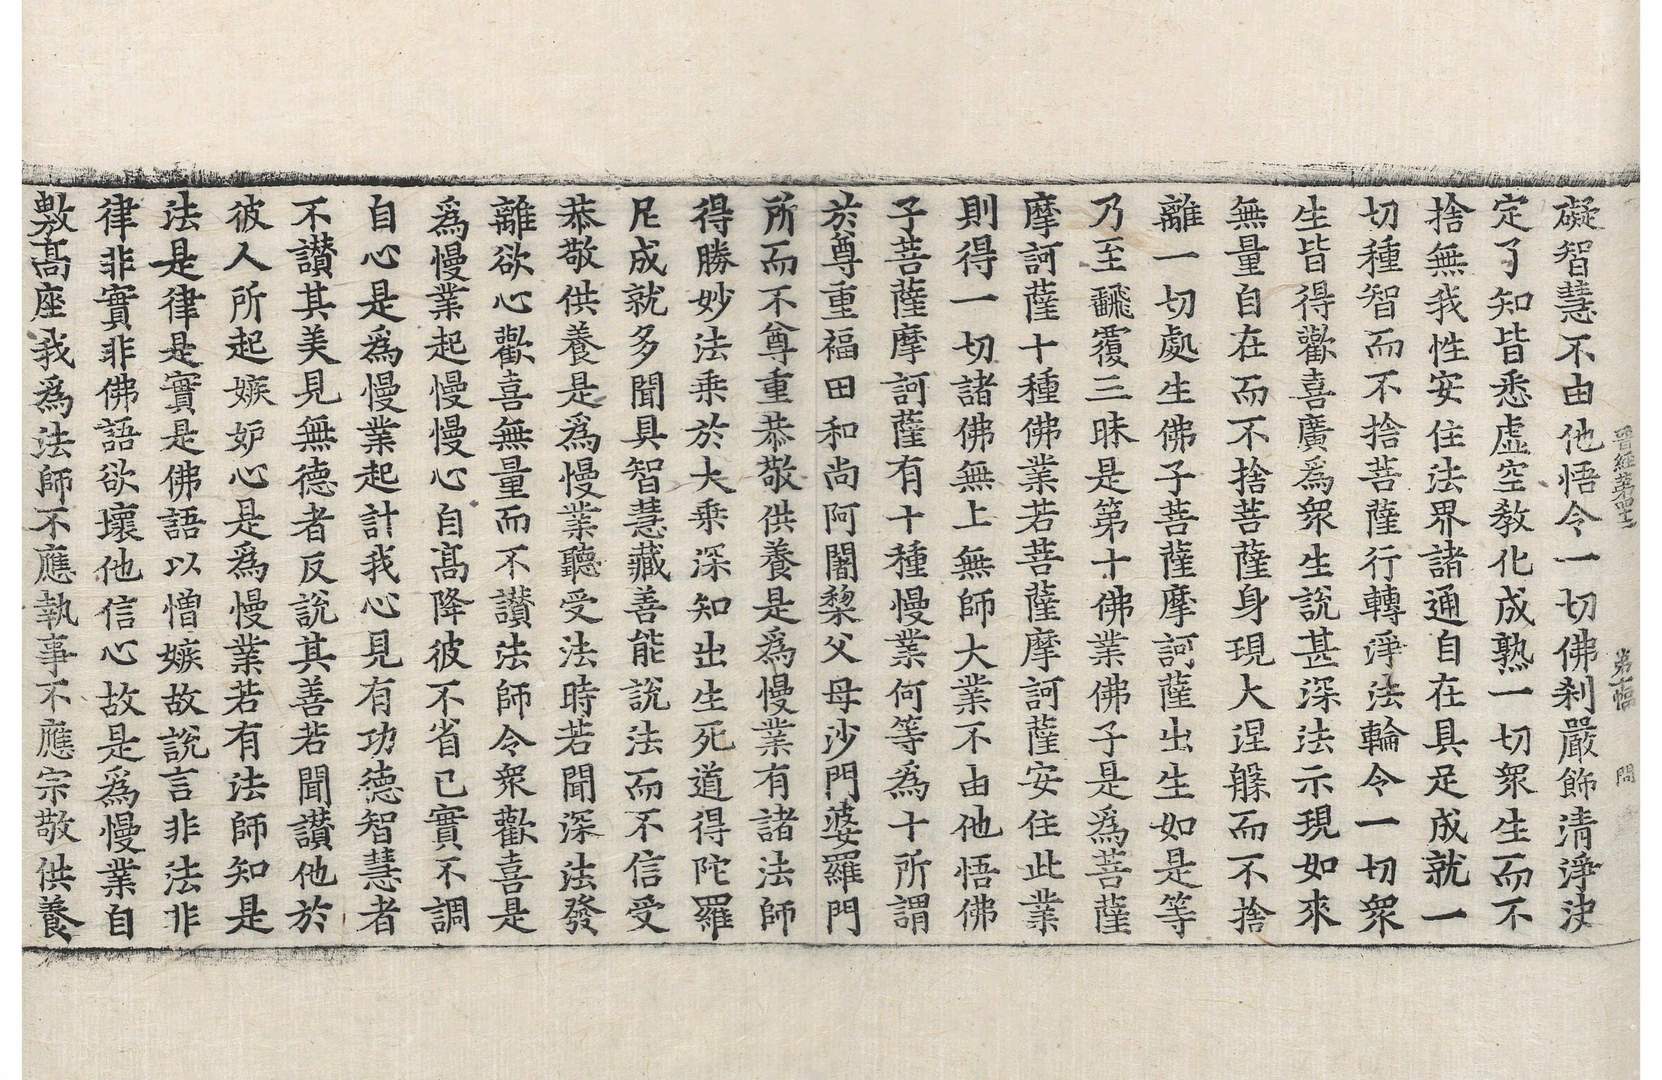 礙智慧不由他悟令一切佛刹嚴飾清淨決
定了知皆悉虛空教化成熟一切衆生而不
捨無我性安住法界諸通自在具足成就一
切種智而不捨菩薩行轉淨法輪令一切衆
生皆得歡喜廣爲衆生說甚深法示現如來
無量自在而不捨菩薩身現大涅槃而不捨
離一切處生佛子菩薩摩訶薩出生如是等
乃至飜覆三昧是第十佛業佛子是爲菩薩
摩訶薩十種佛業若菩薩摩訶薩安住此業
則得一切諸佛無上無師大業不由他悟佛
子菩薩摩訶薩有十種慢業何等爲十所謂
於尊重福田和尚阿闍梨父母沙門婆羅門
所而不尊重恭敬供養是爲慢業有諸法師
得勝妙法乘於大乘深知出生死道得陀羅
尼成就多聞具智慧藏善能說法而不信受
恭敬供養是爲慢業聽受法時若聞深法發
離欲心歡喜無量而不讃法師令衆歡喜是
爲慢業起慢慢心自高降彼不省己實不調
自心是爲慢業起計我心見有功德智慧者
不讃其美見無德者反說其善若聞讃他於
彼人所起嫉妒心是爲慢業若有法師知是
法是律是實是佛語以憎嫉故說言非法非
律非實非佛語欲壞他信心故是爲慢業自
敷高座我爲法師不應執事不應宗敬供養